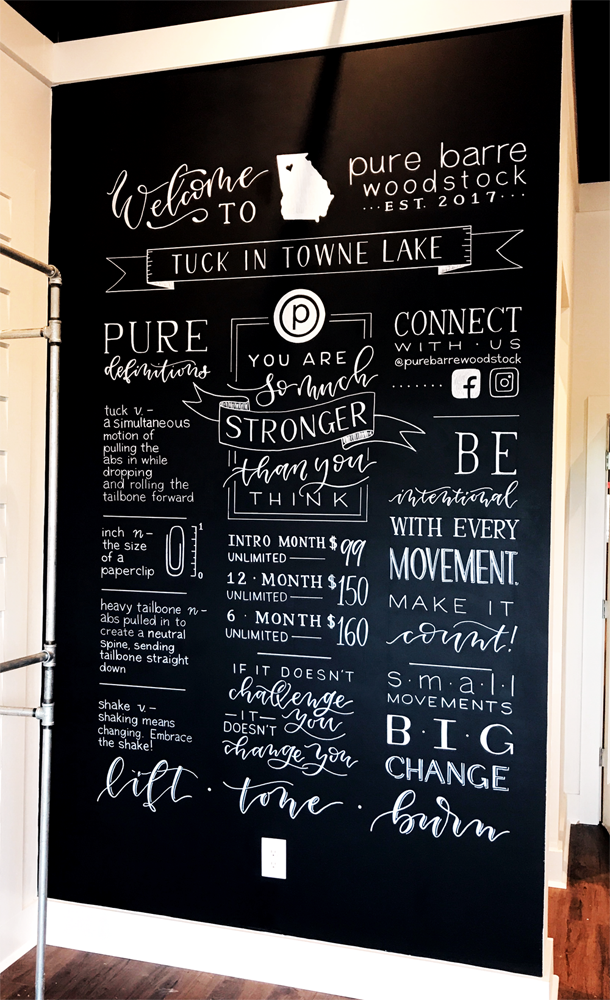 Welcome
TO
pure barre
woodstock
···EST. 2017···
TUCK IN TOWNE LAKE
PURE
definitions
tuck v. –
a simultaneous
motion of
pulling the
abs in while
dropping
and rolling the
tailbone forward
inch n –
the size
of a
paperclip
1
0
heavy tailbone n –
abs pulled in to
create a neutral
spine, sending
tailbone straight
down
shake v. –
shaking means
changing. Embrace
the shake!
p
YOU ARE
so much
STRONGER
than you
THINK
INTRO MONTH $99
UNLIMITED
12 · MONTH $150
UNLIMITED
6 · MONTH $160
UNLIMITED
IF IT DOESN'T
challenge
— IT — you
DOESN'T
change you
CONNECT
WITH · US
@purebarrewoodstock
f
BE
intentional
WITH EVERY
MOVEMENT.
MAKE IT
count!
s·m·a·l·l
MOVEMENTS
B·I·G
CHANGE
lift · tone · burn